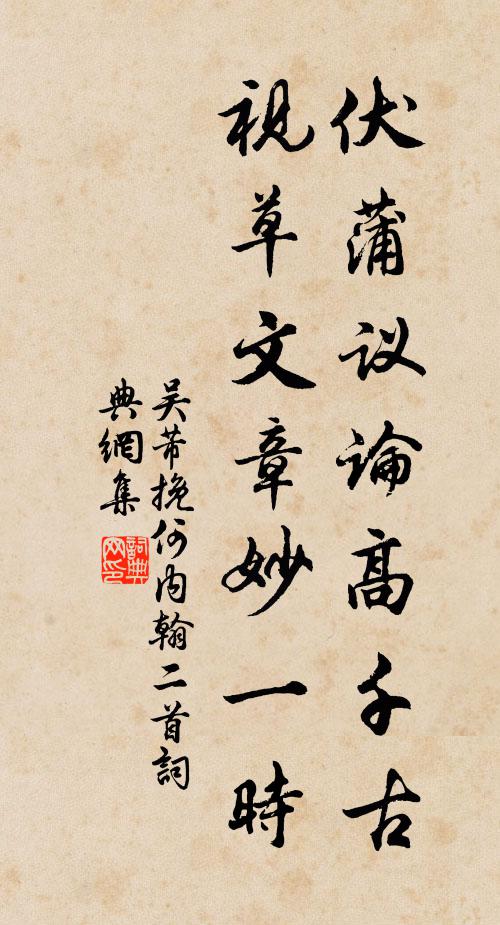 伏蒲议论高千古
視草文章妙一時
吴芾挽何内翰二首詞
典網集
詞典網印